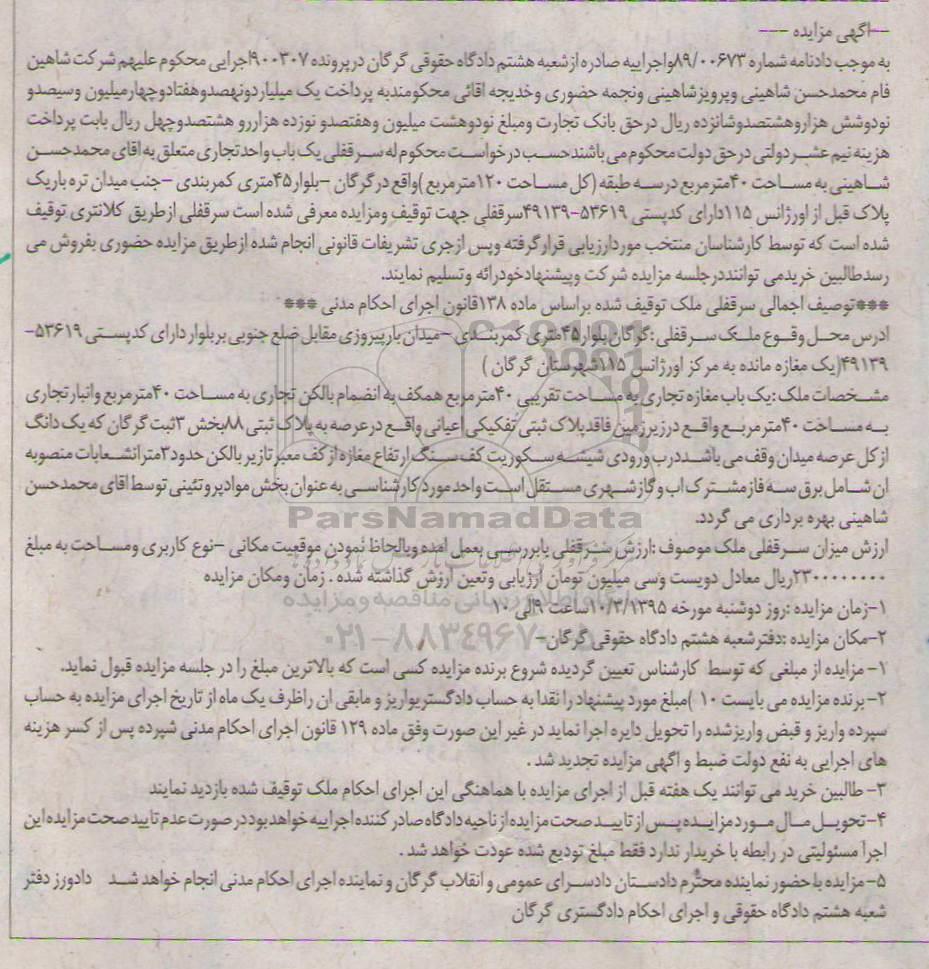 --اگهی مزایده ---
به موجب دادنامه شماره ۸۹/۰۰۶۷۳واجراییه صادره ازشعبه هشتم دادگاه حقوقی گرگان درپرونده ۹۰۰۳۰۷اجرایی محکوم علیهم شرکت شاهین
فام محمدحسن شاهینی وپرویزشاهینی ونجمه حضوری وخدیجه اقائی محکومندبه پرداخت یک میلیاردونهصدوهفتادوچهارمیلیون وسیصدو
نودوشش هزاروهشتصدوشانزده ریال درحق بانک تجارت ومبلغ نودوهشت میلیون وهفتصدو نوزده هزاررو هشتصدوچهل ریال بابت پرداخت
هزینه نیم عشردولتی درحق دولت محکوم می باشندحسب درخواست محکوم له سرقفلی یک باب واحدتجاری متعلق به اقای محمدحسن
شاهینی به مساحت ۴۰مترمربع درسه طبقه (کل مساحت ۱۲۰مترمربع )واقع درگرگان -بلوار۴۵متری کمربندی -جنب میدان تره باریک
پلاک قبل از اورژانس ۱۱۵دارای کدپستی ۵۳۶۱۹-۴۹۱۳۹سرقفلی جهت توقیف ومزایده معرفی شده است سرقفلی ازطریق کلانتری توقیف
شده است که توسط کارشناسان منتخب موردارزیابی قرارگرفته وپس ازجری تشریفات قانونی انجام شده ازطریق مزایده حضوری بفروش می
رسدطالبین خریدمی تواننددرجلسه مزایده شرکت وپیشنهادخودرائه وتسلیم نمایند.
***توصیف اجمالی سرقفلی ملک توقیف شده براساس ماده ۱۳۸قانون اجرای احکام مدنی ***
ادرس محل وقوع ملک سرقفلی:گرگان بلوار۴۵متری کمربندی -میدان بارپیروزی مقابل ضلع جنوبی بربلوار دارای کدپستی ۵۳۶۱۹-
۴۹۱۳۹(یک مغازه مانده به مرکز اورژانس ۱۱۵شهرستان گرگان )
مشخصات ملک:یک باب مغازه تجاری به مساحت تقریبی ۴۰مترمربع همکف به انضمام بالکن تجاری به مساحت ۴۰مترمربع وانبارتجاری
به مساحت ۴۰مترمربع واقع درزیرزمین فاقدپلاک ثبتی تفکیکی اعیانی واقع درعرصه به پلاک ثبتی ۸۸بخش ۳ثبت گرگان که یک دانگ
ازکل عرصه میدان وقف می باشددرب ورودی شیشه سکوریت کف سنگ ارتفاع مغازه ازکف معبر تازیر بالکن حدود۳مترانشعابات منصوبه
ان شامل برق سه فازمشترک اب و گازشهری مستقل است واحد مورد کارشناسی به عنوان بخش موادپروتئینی توسط اقای محمدحسن
شاهینی بهره برداری می گردد.
ParsNamadData
ارزش میزان سرقفلی ملک موصوف :ارزش سرقفلی یابررسی بعمل امده وبالحاظ نمودن موقعیت مکانی -نوع کاربری ومساحت به مبلغ
۲۳۰۰۰۰۰۰۰۰ریال معادل دویست وسی میلیون تومان ارزیابی وتعین ارزش گذاشته شده . زمان ومکان مزایده
پایگاه اطلاع رسانی مناقصه و مزایده
۱-زمان مزایده :روز دوشنبه مورخه ۱۰/۳/۱۳۹۵ساعت ۹الی ۱۰
۰۲۱-۸۸۳۴۹۶۷۰-۵
۲-مکان مزایده :دفترشعبه هشتم دادگاه حقوقی گرگان-
۱- مزایده از مبلغی که توسط کارشناس تعیین گردیده شروع برنده مزایده کسی است که بالاترین مبلغ را در جلسه مزایده قبول نماید.
۲- برنده مزایده می بایست ۱۰ )مبلغ مورد پیشنهاد را نقدا به حساب دادگستریواریز و مابقی ان راظرف یک ماه از تاریخ اجرای مزایده به حساب
سپرده واریز و قبض واریزشده را تحویل دایره اجرا نماید در غیر این صورت وفق ماده ۱۲۹ قانون اجرای احکام مدنی شپرده پس از کسر هزینه
های اجرایی به نفع دولت ضبط و اگهی مزایده تجدید شد .
۳- طالبین خرید می توانند یک هفته قبل از اجرای مزایده با هماهنگی این اجرای احکام ملک توقیف شده بازدید نمایند
۴-تحویل مال مورد مزایده پس از تایید صحت مزایده از ناحیه دادگاه صادر کننده اجراییه خواهد بود در صورت عدم تایید صحت مزایده این
اجرا مسئولیتی در رابطه با خریدار ندارد فقط مبلغ تودیع شده عودت خواهد شد .
۵- مزایده با حضور نماینده محترم دادستان دادسرای عمومی و انقلاب گرگان و نماینده اجرای احکام مدنی انجام خواهد شد دادورز دفتر
شعبه هشتم دادگاه حقوقی و اجرای احکام دادگستری گرگان